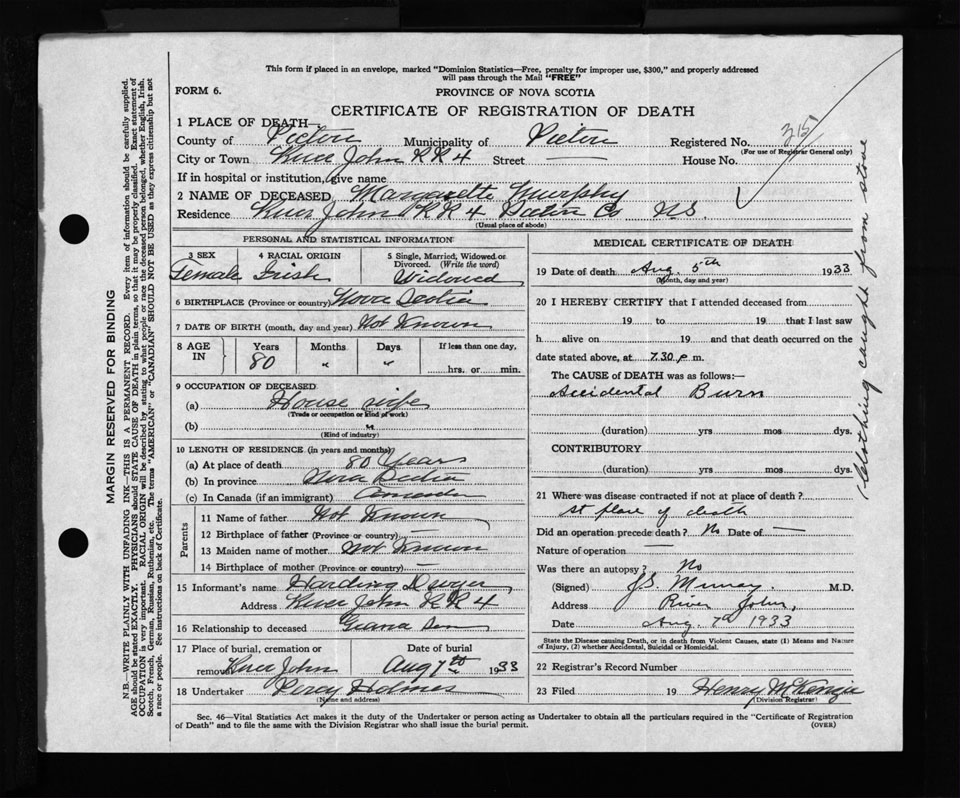 This form if placed in an envelope, marked "Dominion Statistics—Free, penalty for improper use, $300," and properly addressed
will pass through the Mail "FREE"
FORM 6.
PROVINCE OF NOVA SCOTIA
CERTIFICATE OF REGISTRATION OF DEATH
1 PLACE OF DEATH—
County of Pictou Municipality of Pictou Registered No. 315
(For use of Registrar General only)
City or Town River John RR4 Street — House No.
If in hospital or institution, give name
2 NAME OF DECEASED Murphy
Residence River John RR4 Pictou Co NS.
(Usual place of abode)
PERSONAL AND STATISTICAL INFORMATION
3 SEX 4 RACIAL ORIGIN 5 Single, Married, Widowed or
Divorced. (Write the word)
Female Irish Widowed
6 BIRTHPLACE (Province or country) Nova Scotia
7 DATE OF BIRTH (month, day and year) Not Known
8 AGE IN Years Months Days If less than one day,
80 " " hrs. or min.
9 OCCUPATION OF DECEASED
(a) House wife
(Trade or occupation or kind of work)
(b) "
(Kind of industry)
10 LENGTH OF RESIDENCE (in years and months)
(a) At place of death 80 Years
(b) In province Nova Scotia
(c) In Canada (if an immigrant)
Parents
11 Name of father Not Known
12 Birthplace of father (Province or country) —
13 Maiden name of mother Not Known
14 Birthplace of mother (Province or country) —
15 Informant's name Harding Dwyer
Address River John RR4
16 Relationship to deceased Grand Son
17 Place of burial, cremation or Date of burial
removal River John Aug 7th 1933
18 Undertaker Percy Holmes
(Name and address)
MEDICAL CERTIFICATE OF DEATH
19 Date of death Aug. 5th 1933
(Month, day and year)
20 I HEREBY CERTIFY that I attended deceased from
19 to 19 that I last saw
h alive on 19 and that death occurred on the
date stated above, at 7.30 p m.
The CAUSE of DEATH was as follows:—
Accidental Burn
(duration) yrs mos dys.
CONTRIBUTORY
(duration) yrs mos dys.
21 Where was disease contracted if not at place of death?
at place of death
Did an operation precede death? No Date of —
Nature of operation —
Was there an autopsy? No
(Signed) J.S. Murray. M.D.
Address River John,
Date Aug. 7th 1933
State the Disease causing Death, or in death from Violent Causes, state (1) Means and Nature
of Injury, (2) whether Accidental, Suicidal or Homicidal.
22 Registrar's Record Number
23 Filed 19 Henry McKenzie
(Division Registrar)
Sec. 46—Vital Statistics Act makes it the duty of the Undertaker or person acting as Undertaker to obtain all the particulars required in the "Certificate of Registration
of Death" and to file the same with the Division Registrar who shall issue the burial permit.
(OVER)
Clothing caught from stove
MARGIN RESERVED FOR BINDING
N.B.—WRITE PLAINLY WITH UNFADING INK—THIS IS A PERMANENT RECORD. Every item of information should be carefully supplied.
AGE should be stated EXACTLY. PHYSICIANS should STATE CAUSE OF DEATH in plain terms, so that it may be properly classified. Exact statement of
OCCUPATION is very important. RACIAL ORIGIN will be described by stating to what people or race the deceased person belonged, whether English, Irish,
Scotch, French, German, Russian, Ruthenian, etc. The terms "AMERICAN" or "CANADIAN" SHOULD NOT BE USED as they express citizenship but not
a race or people. See instructions on back of Certificate.